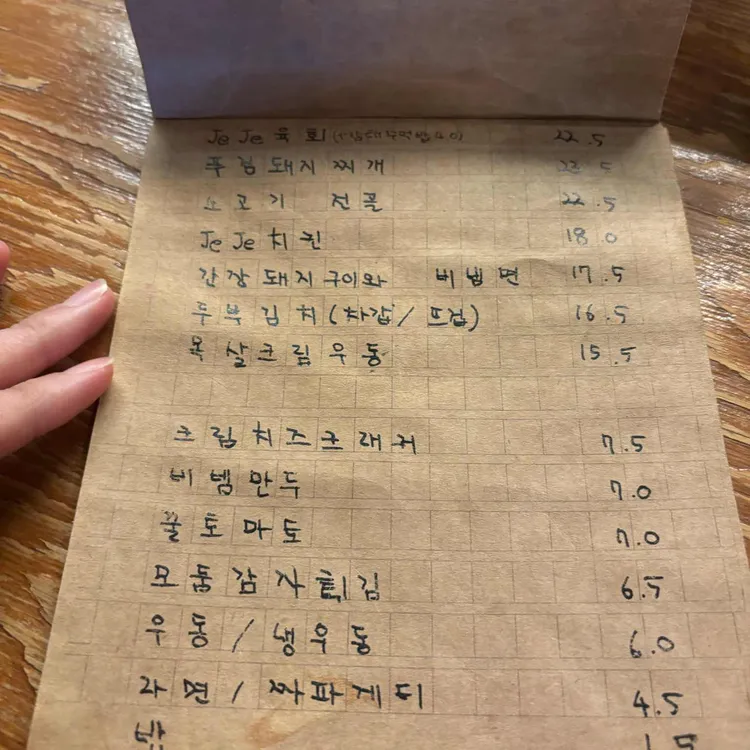 JeJe 육회 22.5
돼지 찌개 22.5
소고기 전골 22.5
JeJe 치킨 18.0
간장돼지구이와 비빔면 17.5
두부김치(차갑/뜨겁) 16.5
목살크림우동 15.5
크림치즈크래커 7.5
비빔만두 7.0
꿀토마토 7.0
모둠감자튀김 6.5
우동/냉우동 6.0
라면/짜파게티 4.5